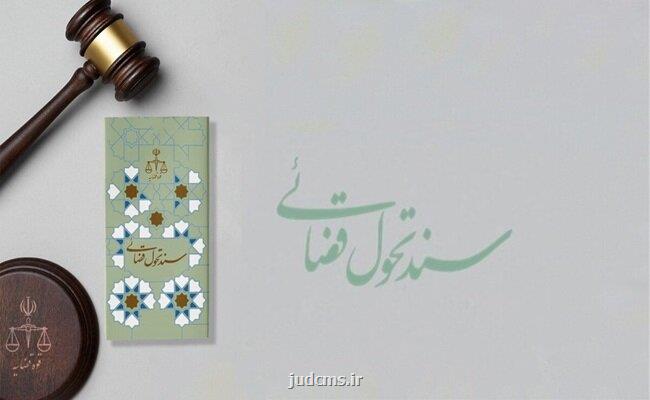 قوه قضاییه
سند تحول قضائی
سند تحول قضائی
قوه قضاییه
judcms.ir